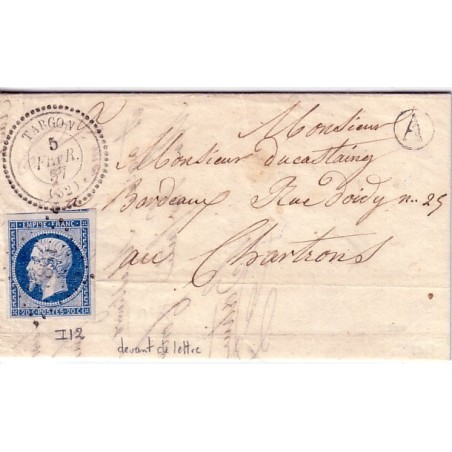 TARGON
5
FEVR.
57
(32)
A
Monsieur
Monsieur Ducastaing
Bordeaux Rue Doidy n.. 25
au Chartrons
EMPIRE FRANC
20 C POSTES 20 C
I12
devant de lettre